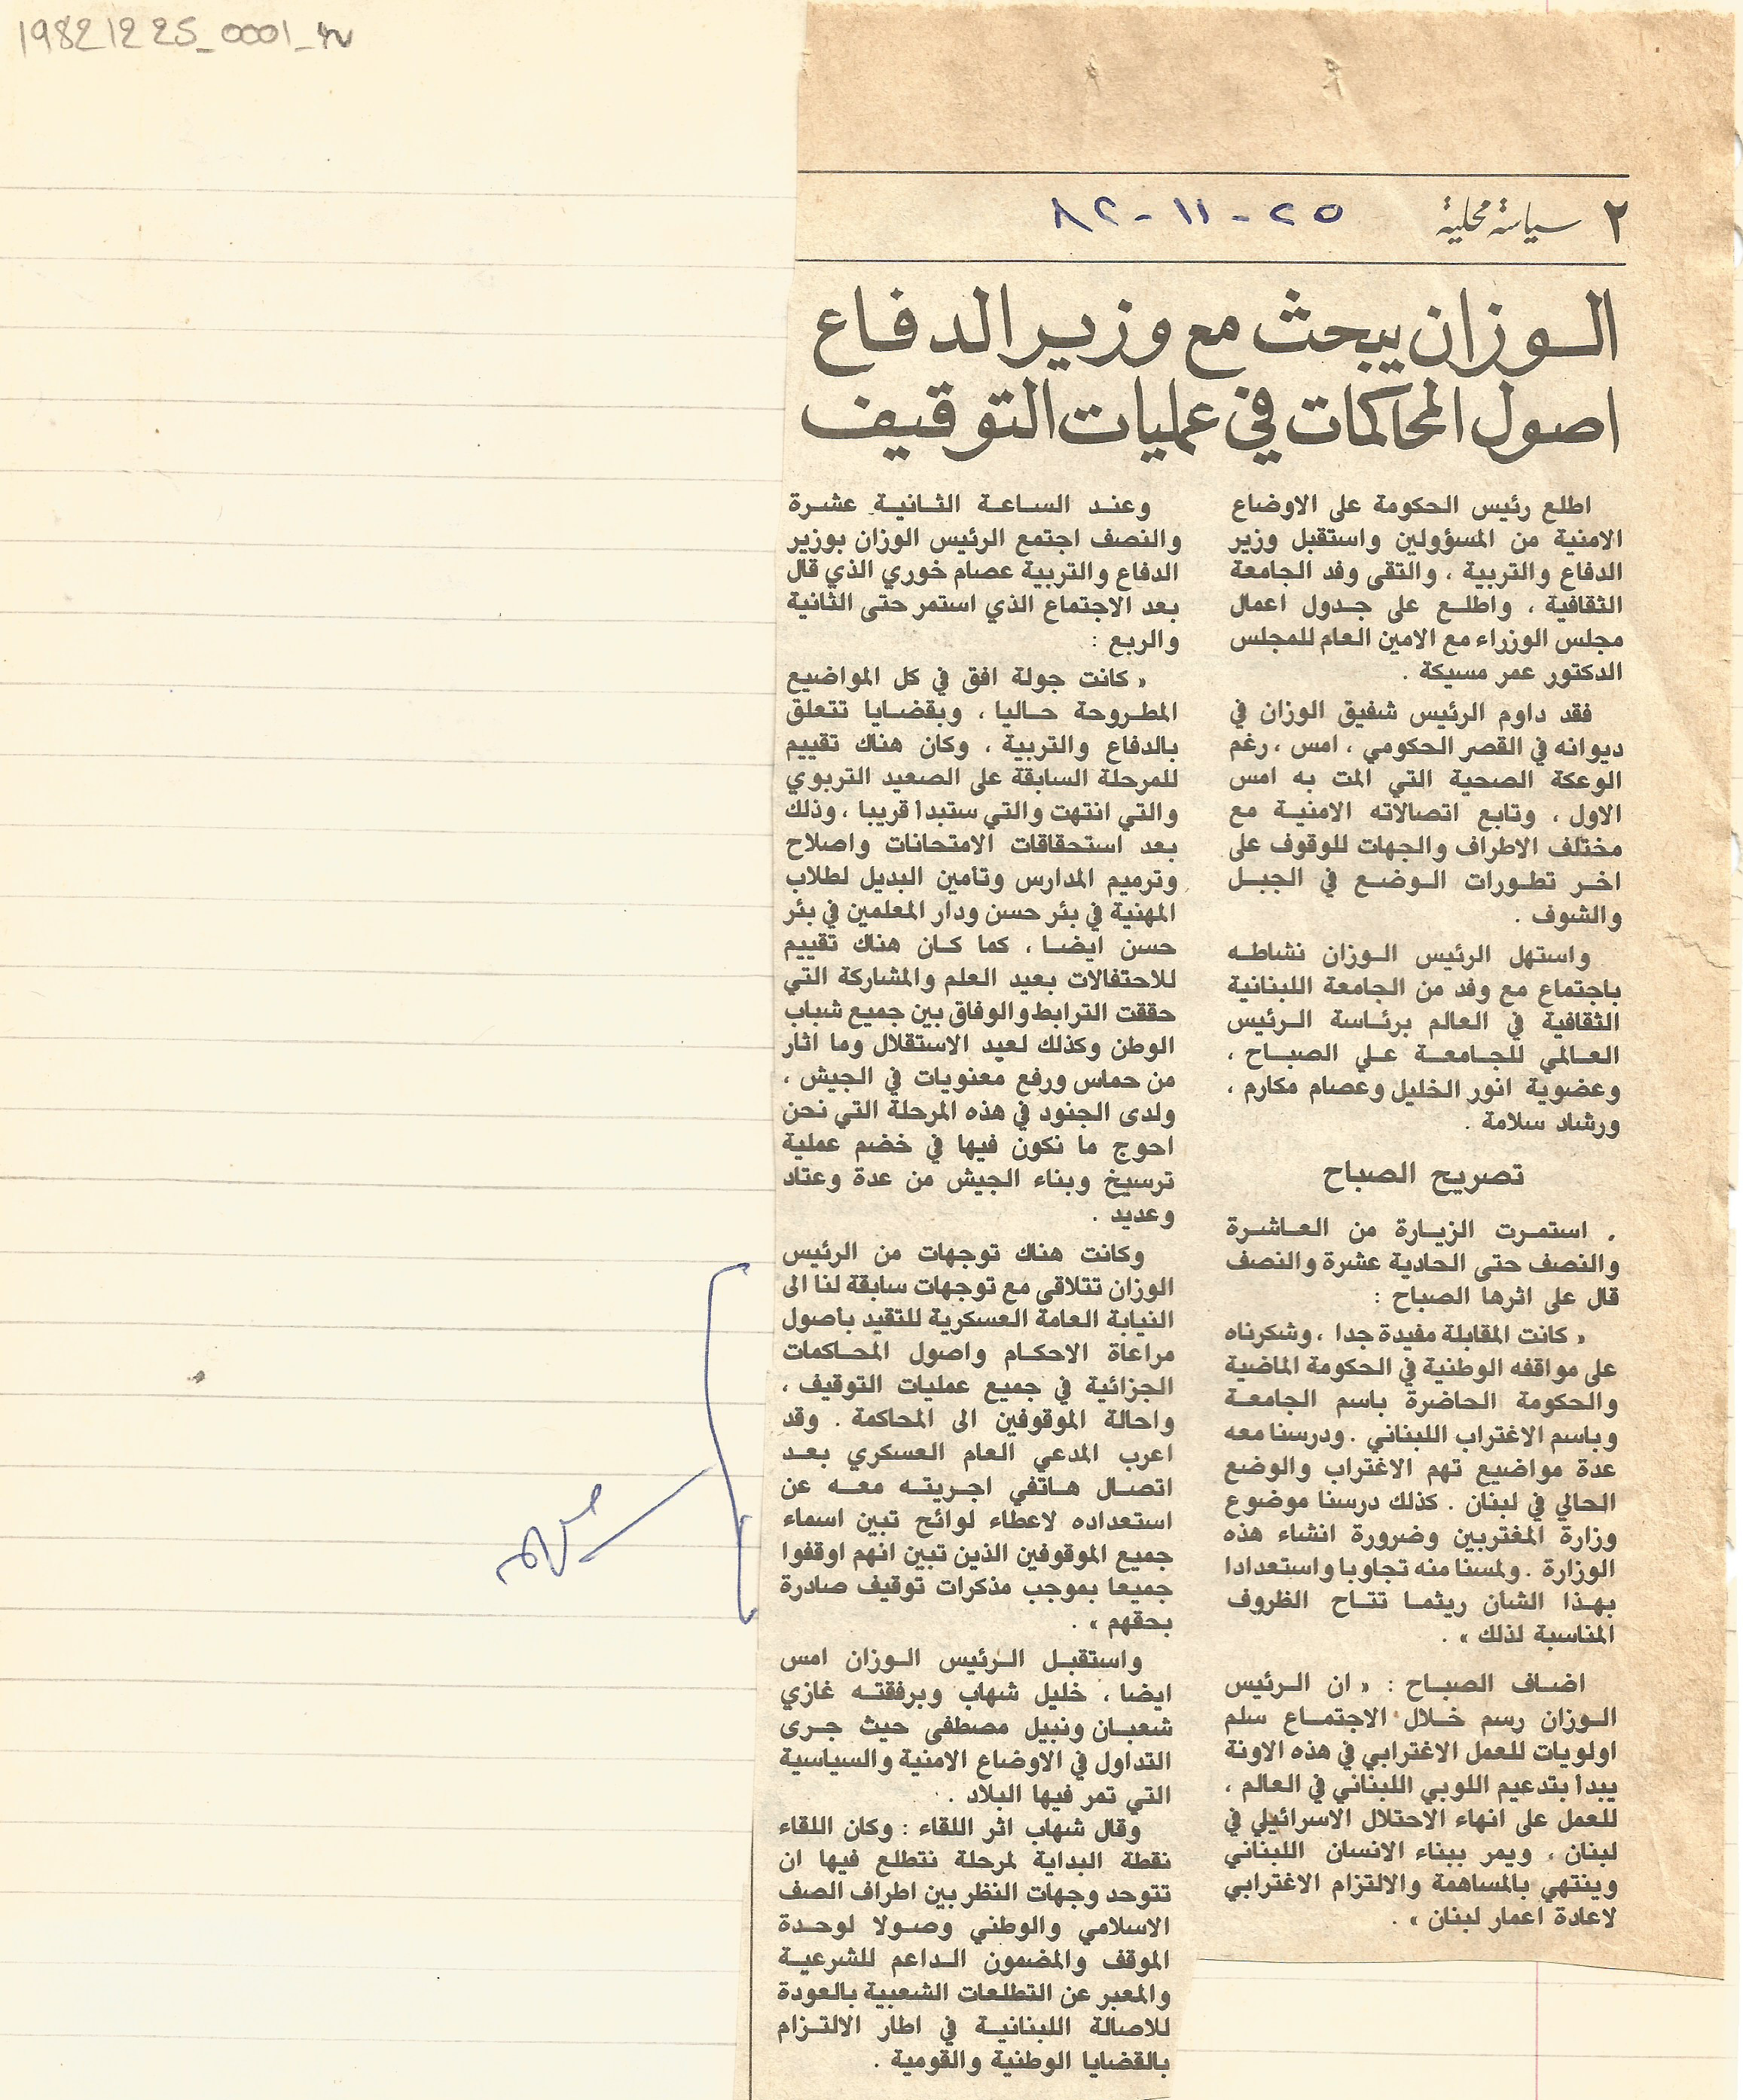 19821225_0001_
٢ سياسة محلية
٢٥ - ١١ - ٨٢
الوزان يبحث مع وزير الدفاع
اصول المحاكمات في عمليات التوقيف
اطلع رئيس الحكومة على الاوضاع
الامنية من المسؤولين واستقبل وزير
الدفاع والتربية ، والتقى وفد الجامعة
الثقافية ، واطلع على جدول اعمال
مجلس الوزراء مع الامين العام للمجلس
الدكتور عمر مسيكة .
فقد داوم الرئيس شفيق الوزان في
ديوانه في القصر الحكومي ، امس ، رغم
الوعكة الصحية التي المت به امس
الاول ، وتابع اتصالاته الامنية مع
مختلف الاطراف والجهات للوقوف على
اخر تطورات الوضع في الجبل
والشوف .
واستهل الرئيس الوزان نشاطه
باجتماع مع وفد من الجامعة اللبنانية
الثقافية في العالم برئاسة الرئيس
العالمي للجامعة علي الصباح ،
وعضوية انور الخليل وعصام مكارم ،
ورشاد سلامة .
تصريح الصباح
. استمرت الزيارة من العاشرة
والنصف حتى الحادية عشرة والنصف
قال على اثرها الصباح :
« كانت المقابلة مفيدة جدا ، وشكرناه
على مواقفه الوطنية في الحكومة الماضية
والحكومة الحاضرة باسم الجامعة
وباسم الاغتراب اللبناني . ودرسنا معه
عدة مواضيع تهم الاغتراب والوضع
الحالي في لبنان . كذلك درسنا موضوع
وزارة المغتربين وضرورة انشاء هذه
الوزارة . ولمسنا منه تجاوبا واستعدادا
بهذا الشان ريثما تتاح الظروف
المناسبة لذلك » .
اضاف الصباح : « ان الرئيس
الوزان رسم خلال الاجتماع سلم
اولويات للعمل الاغترابي في هذه الاونة
يبدا بتدعيم اللوبي اللبناني في العالم ،
للعمل على انهاء الاحتلال الاسرائيلي في
لبنان ، ويمر ببناء الانسان اللبناني
وينتهي بالمساهمة والالتزام الاغترابي
لاعادة اعمار لبنان » .
وعند الساعة الثانية عشرة
والنصف اجتمع الرئيس الوزان بوزير
الدفاع والتربية عصام خوري الذي قال
بعد الاجتماع الذي استمر حتى الثانية
والربع :
« كانت جولة افق في كل المواضيع
المطروحة حاليا ، وبقضايا تتعلق
بالدفاع والتربية ، وكان هناك تقييم
للمرحلة السابقة على الصعيد التربوي
والتي انتهت والتي ستبدا قريبا ، وذلك
بعد استحقاقات الامتحانات واصلاح
وترميم المدارس وتامين البديل لطلاب
المهنية في بئر حسن ودار المعلمين في بئر
حسن ايضا ، كما كان هناك تقييم
للاحتفالات بعيد العلم والمشاركة التي
حققت الترابط والوفاق بين جميع شباب
الوطن وكذلك لعيد الاستقلال وما اثار
من حماس ورفع معنويات في الجيش ،
ولدى الجنود في هذه المرحلة التي نحن
احوج ما نكون فيها في خضم عملية
ترسيخ وبناء الجيش من عدة وعتاد
وعديد .
وكانت هناك توجهات من الرئيس
الوزان تتلاقى مع توجهات سابقة لنا الى
النيابة العامة العسكرية للتقيد باصول
مراعاة الاحكام واصول المحاكمات
الجزائية في جميع عمليات التوقيف ،
واحالة الموقوفين الى المحاكمة . وقد
اعرب المدعي العام العسكري بعد
اتصال هاتفي اجريته معه عن
استعداده لاعطاء لوائح تبين اسماء
جميع الموقوفين الذين تبين انهم اوقفوا
جميعا بموجب مذكرات توقيف صادرة
بحقهم » .
واستقبل الرئيس الوزان امس
ايضا ، خليل شهاب وبرفقته غازي
شعبان ونبيل مصطفى حيث جرى
التداول في الاوضاع الامنية والسياسية
التي تمر فيها البلاد .
وقال شهاب اثر اللقاء : وكان اللقاء
نقطة البداية لمرحلة نتطلع فيها ان
تتوحد وجهات النظر بين اطراف الصف
الاسلامي والوطني وصولا لوحدة
الموقف والمضمون الداعم للشرعية
والمعبر عن التطلعات الشعبية بالعودة
للاصالة اللبنانية في اطار الالتزام
بالقضايا الوطنية والقومية .